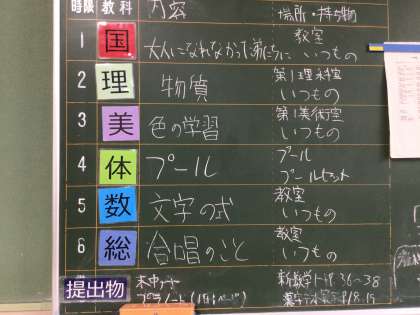 時限 教科 内容 場所・持ち物
1 国 大人になれなかった弟たちに 教室 いつもの
2 理 物質 第1理科室 いつもの
3 美 色の学習 第1美術室 いつもの
4 体 プール プール プールセット
5 数 文字の式 教室 いつもの
6 総 合唱のこと 教室 いつもの
提出物 ノート 36〜38
ノート P18.19